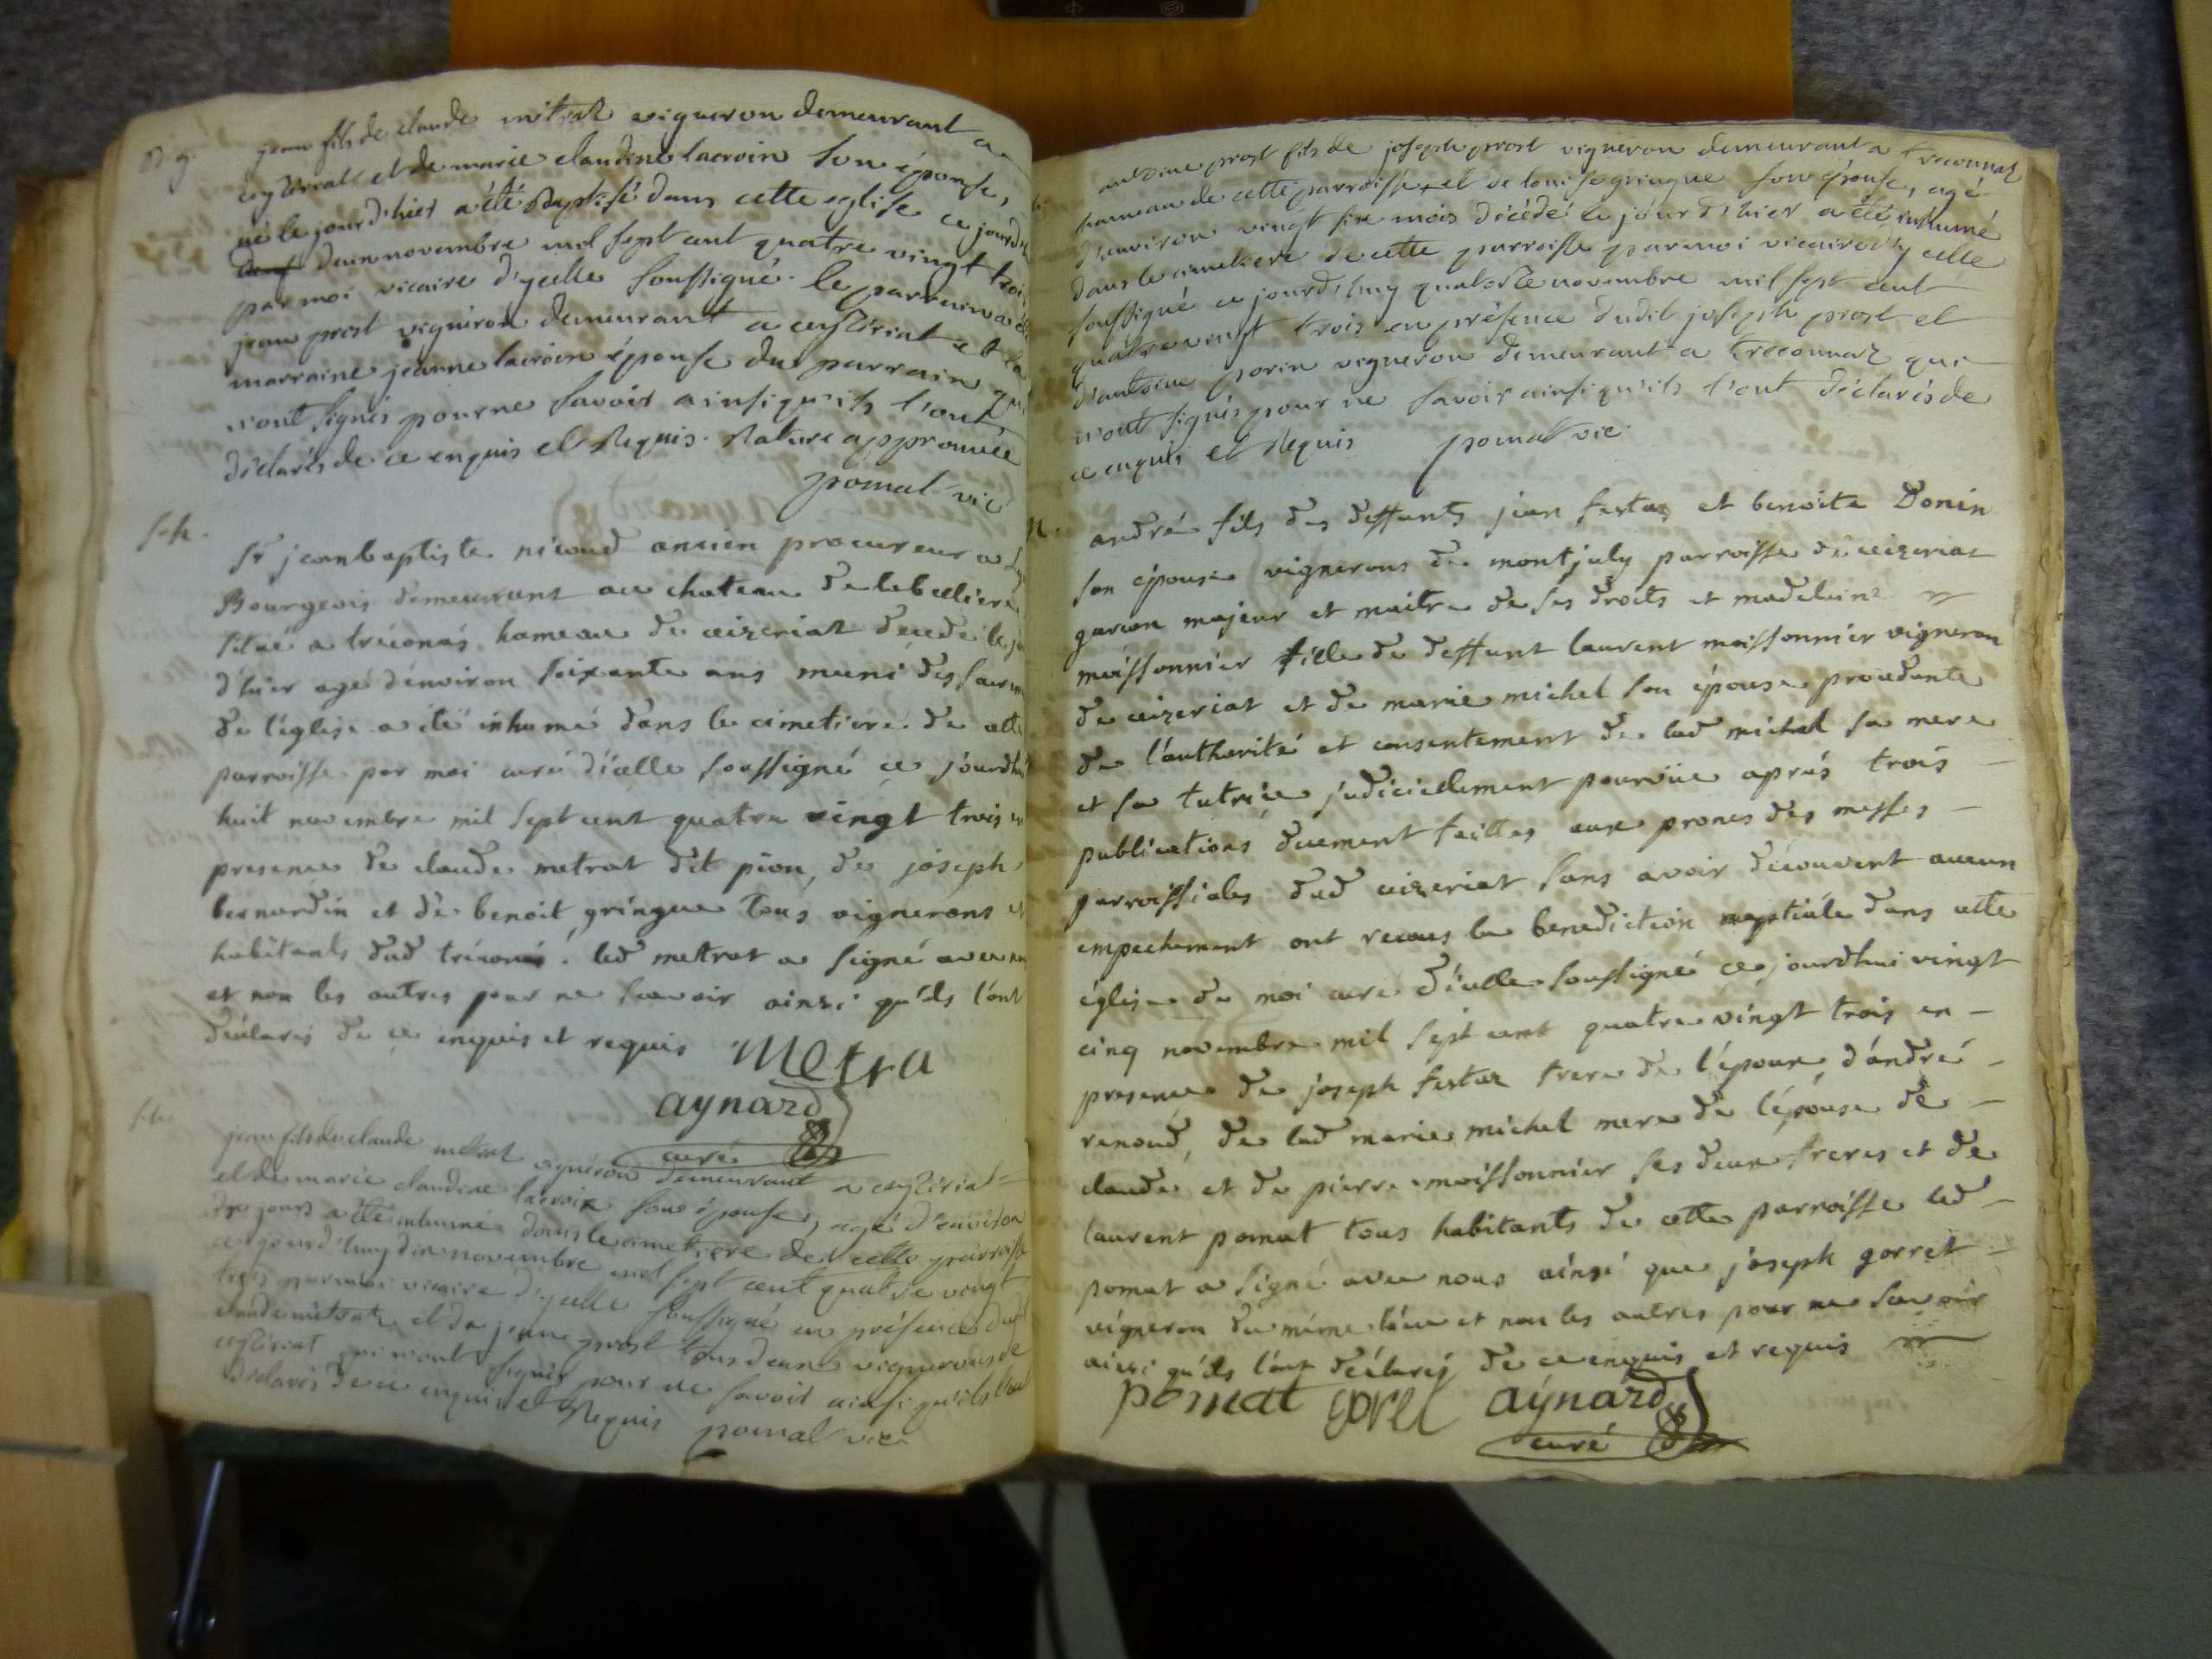 B. g. jean fils de claude mitrat vigneron demeurant a
ceyzériat et de marie claudine lacroix son épouse,
né le jour d'hier a été Baptisé dans cette eglise ce jourd'
deux novembre mil sept cent quatre vingt trois
par moi vicaire d'ycelle soussigné. le parrain a été
jean prost vigneron demeurant a ceyzériat et la
marraine jeanne lacroix épouse du parrain qui
n'ont signés pour ne savoir ainsi qu'ils l'ont
déclarés de ce enquis et Requis. Rature approuvée
pomat vic
s. h.
sr jean baptiste nicoud ancien procureur a
Bourgeois demeurant au chateau de la
situé a tréconas hameau de ceizeriat decedé le
d'hier agé d'environ soixante ans muni des
de l'église a été inhumé dans le cimetiere de cette
parroisse par moi curé d'icelle soussigné ce jourdhui
huit novembre mil sept cent quatre vingt trois en
presence de claude metrat dit pion, de joseph
bernardin et de benoit gringue tous vignerons et
habitants dud tréconas. led metrat a signé avec
et non les autres pour ne scavoir ainsi qu'ils l'ont
déclarés de ce enquis et requis Metra
aynard
curé
jean fils de claude metrat vigneron demeurant a ceyzériat
et de marie claudine lacroix son épouse, agé d'environ
dix jours a été inhumé dans le cimetiere de cette parroisse
ce jourd'huy dix novembre mil sept cent quatre vingt
trois par moi vicaire d'ycelle soussigné en présence dudit
claude mitrat et de jean prost tous deux vignerons de
ceyzériat qui n'ont signés pour ne savoir ainsi qu'ils l'ont
déclarés de ce enquis et Requis pomat vic
antoine prost fils de joseph prost vigneron demeurant a treconnaz
hameau de cette parroisse, et de louise gringue son épouse, agé
d'environ vingt six mois décédé le jour d'hier a été inhumé
dans le cimetiere de cette parroisse par moi vicaire d'ycelle
soussigné ce jourd'huy quatorze novembre mil sept cent
quatre vingt trois en présence dudit joseph prost et
d'antoine porin vigneron demeurant a treconnaz qui
n'ont signés pour ne savoir ainsi qu'ils l'ont déclarés de
ce enquis et Requis pomat vic
andré fils des deffunts jean festaz et benoite Donin
son épouse vignerons de montjuly parroisse de ceizeriat
garcon majeur et maitre de ses droits et madeleine
moissonnier fille de deffunt laurent moissonnier vigneron
de ceizeriat et de marie michel son épouse procedante
de l'authorité et consentement de lad michel sa mere
et sa tutrice judiciellement pourvüe aprés trois
publications duement faittes aux prones des messes
parroissiales dud ceizeriat sans avoir découvert aucun
empechement ont recous la benediction nuptiale dans cette
église de moi curé d'icelle soussigné ce jourdhui vingt
cinq novembre mil sept cent quatre vingt trois en
presence de joseph festaz frere de l'époux, d'andré
renoud, de lad marie michel mere de l'épouse de
claude et de pierre moissonnier ses deux freres et de
laurent pomat tous habitants de cette parroisse led
pomat a signé avec nous ainsi que joseph gorret
vigneron du même lieu et non les autres pour ne scavoir
ainsi qu'ils l'ont déclarés de ce enquis et requis
pomat gorel aynard
curé